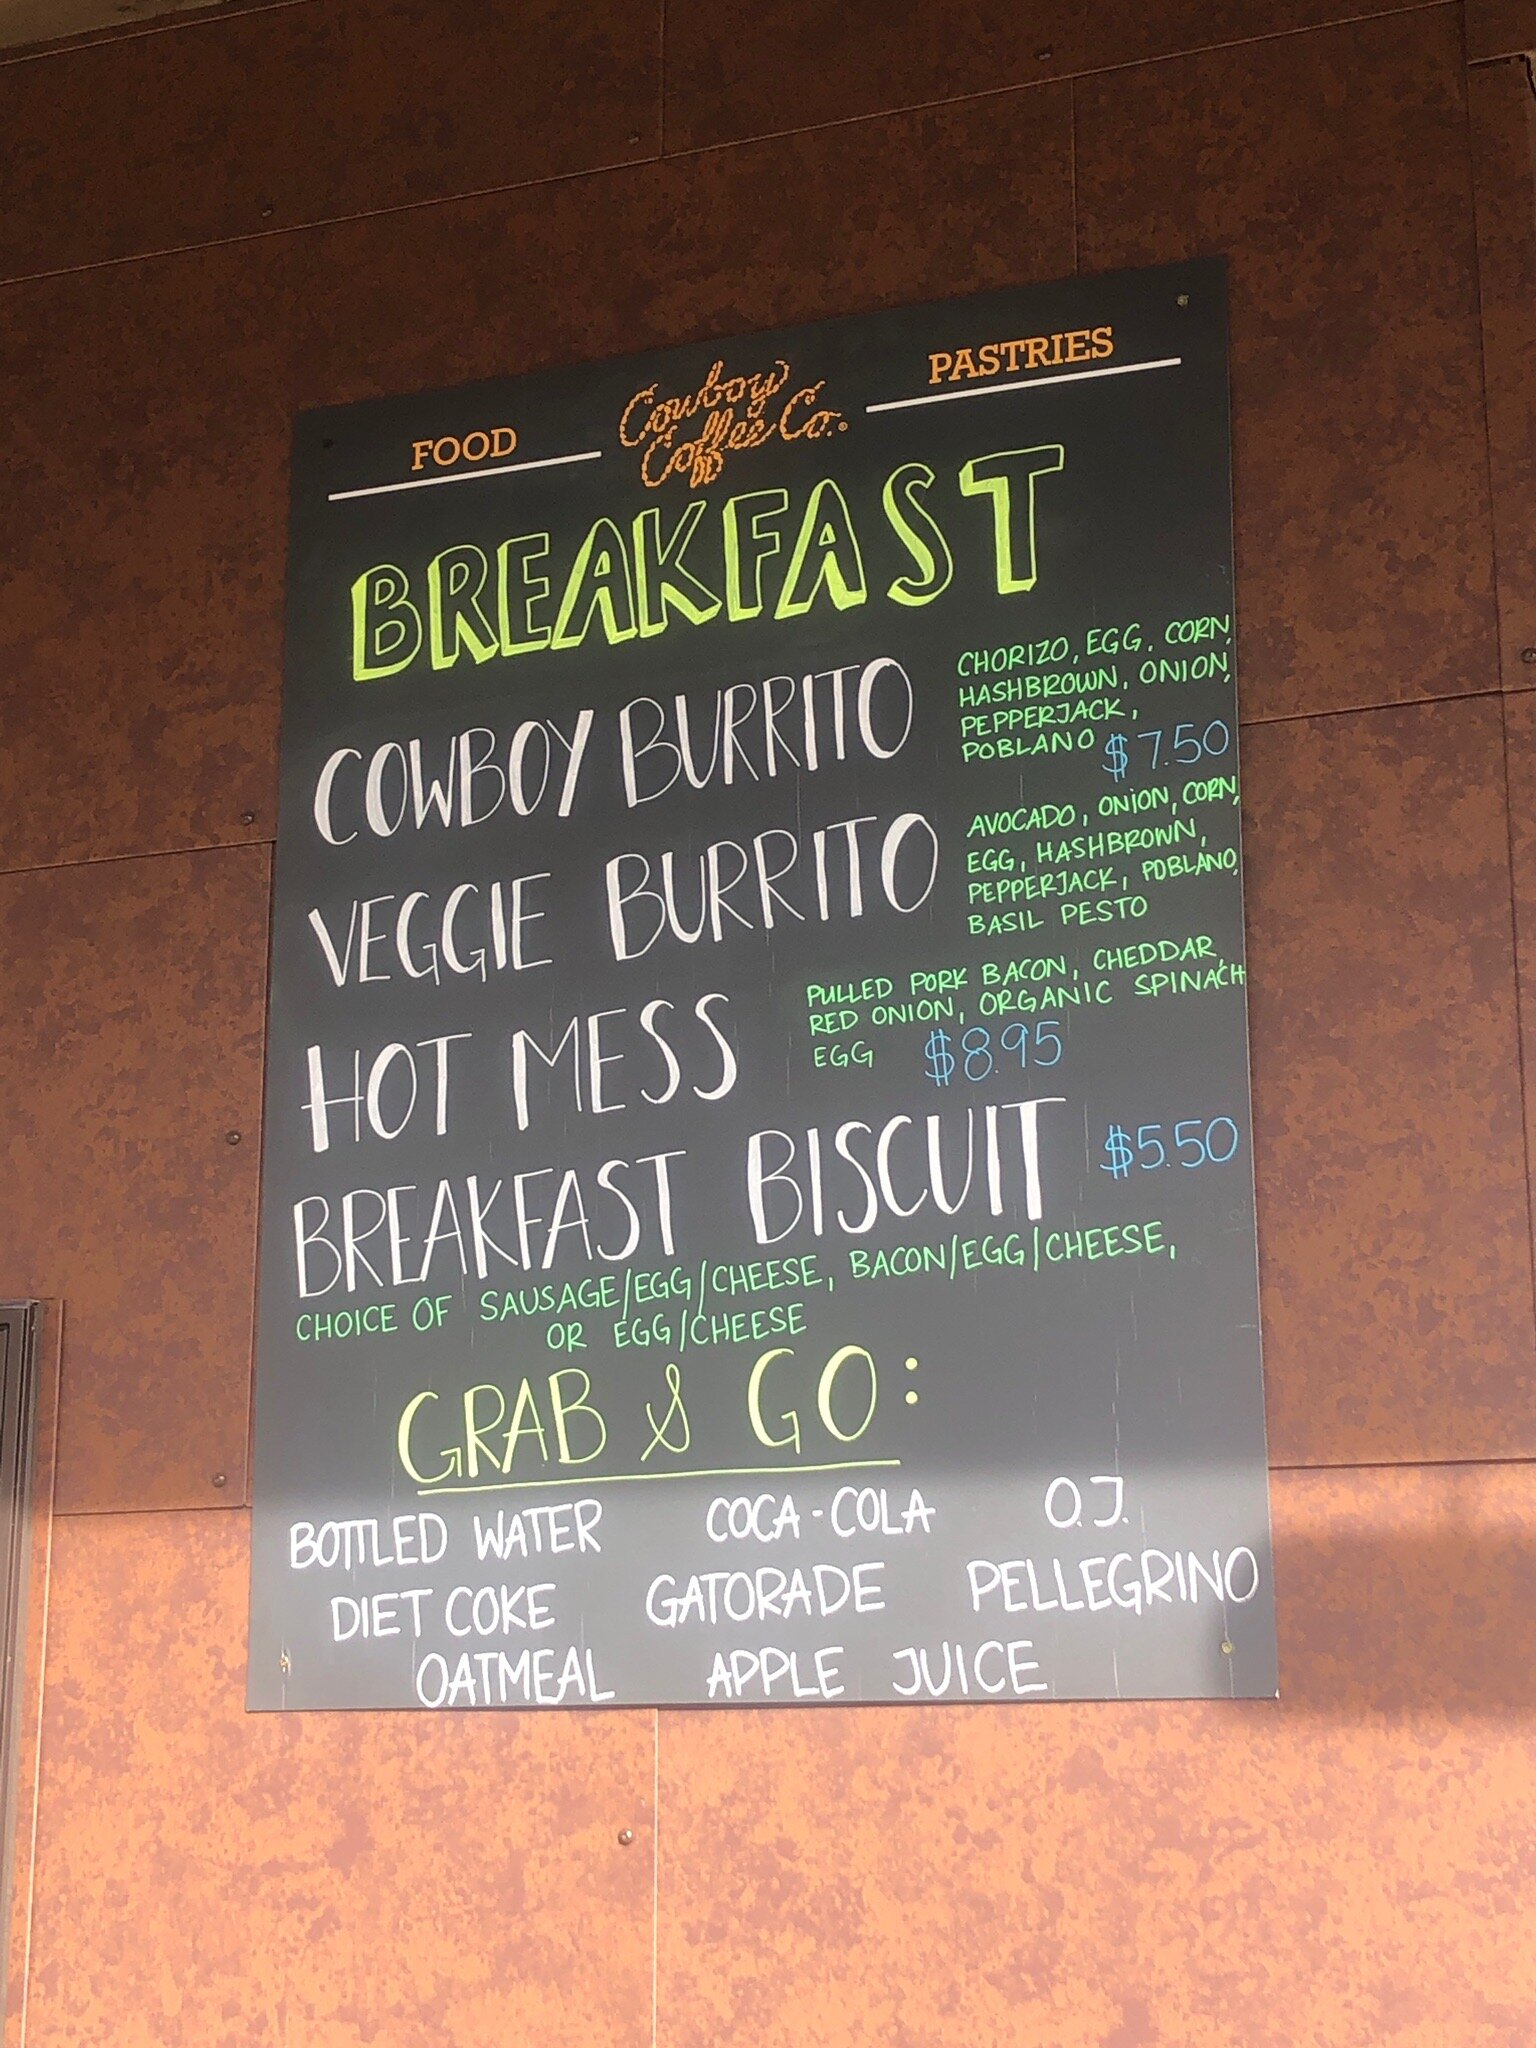 FOOD
Cowboy
Coffee Co.®
PASTRIES
BREAKFAST
COWBOY BURRITO
CHORIZO, EGG, CORN,
HASHBROWN, ONION,
PEPPERJACK,
POBLANO $7.50
VEGGIE BURRITO
AVOCADO, ONION, CORN,
EGG, HASHBROWN,
PEPPERJACK, POBLANO,
BASIL PESTO
HOT MESS
PULLED PORK BACON, CHEDDAR,
RED ONION, ORGANIC SPINACH
EGG $8.95
BREAKFAST BISCUIT $5.50
CHOICE OF SAUSAGE/EGG/CHEESE, BACON/EGG/CHEESE,
OR EGG/CHEESE
GRAB & GO:
BOTTLED WATER COCA-COLA O.J.
DIET COKE GATORADE PELLEGRINO
OATMEAL APPLE JUICE